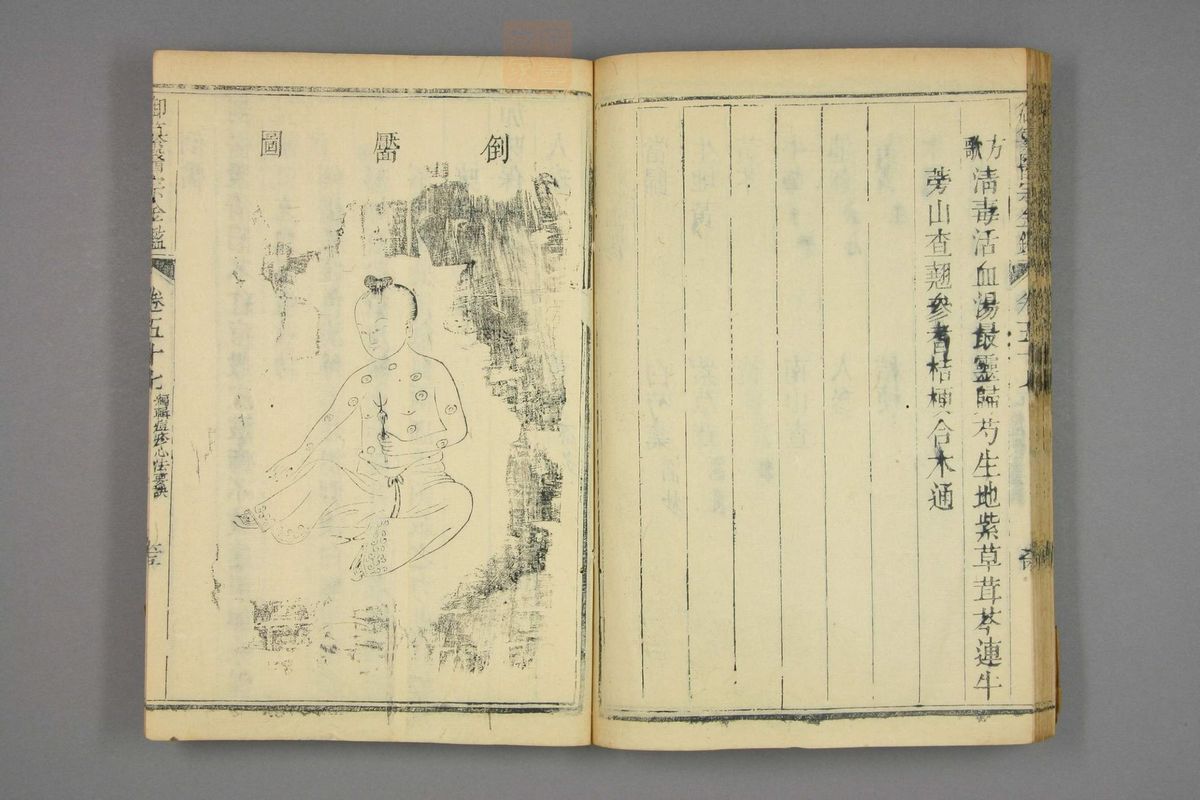 方歌
清毒活血湯最靈歸芍生地紫草茸芩連牛
蒡山查翹參耆桔梗合木通
倒靨圖
御纂醫宗金鑑
卷五十七
編輯痘疹心法要訣